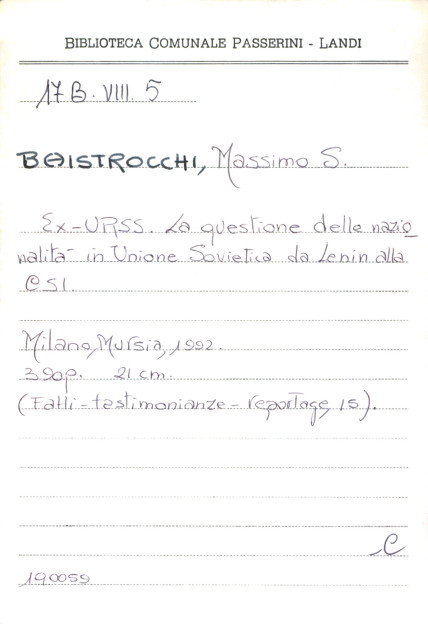 BIBLIOTECA COMUNALE PASSERINI - LANDI
17 B. VIII. 5
BAISTROCCHI, Massimo S.
Ex-URSS. La questione delle nazio
nalità in Unione Sovietica da Lenin alla
CSI.
Milano, Mursia, 1992.
390p. 21 cm.
(Fatti-testimonianze-reportage, 15).
C
190059